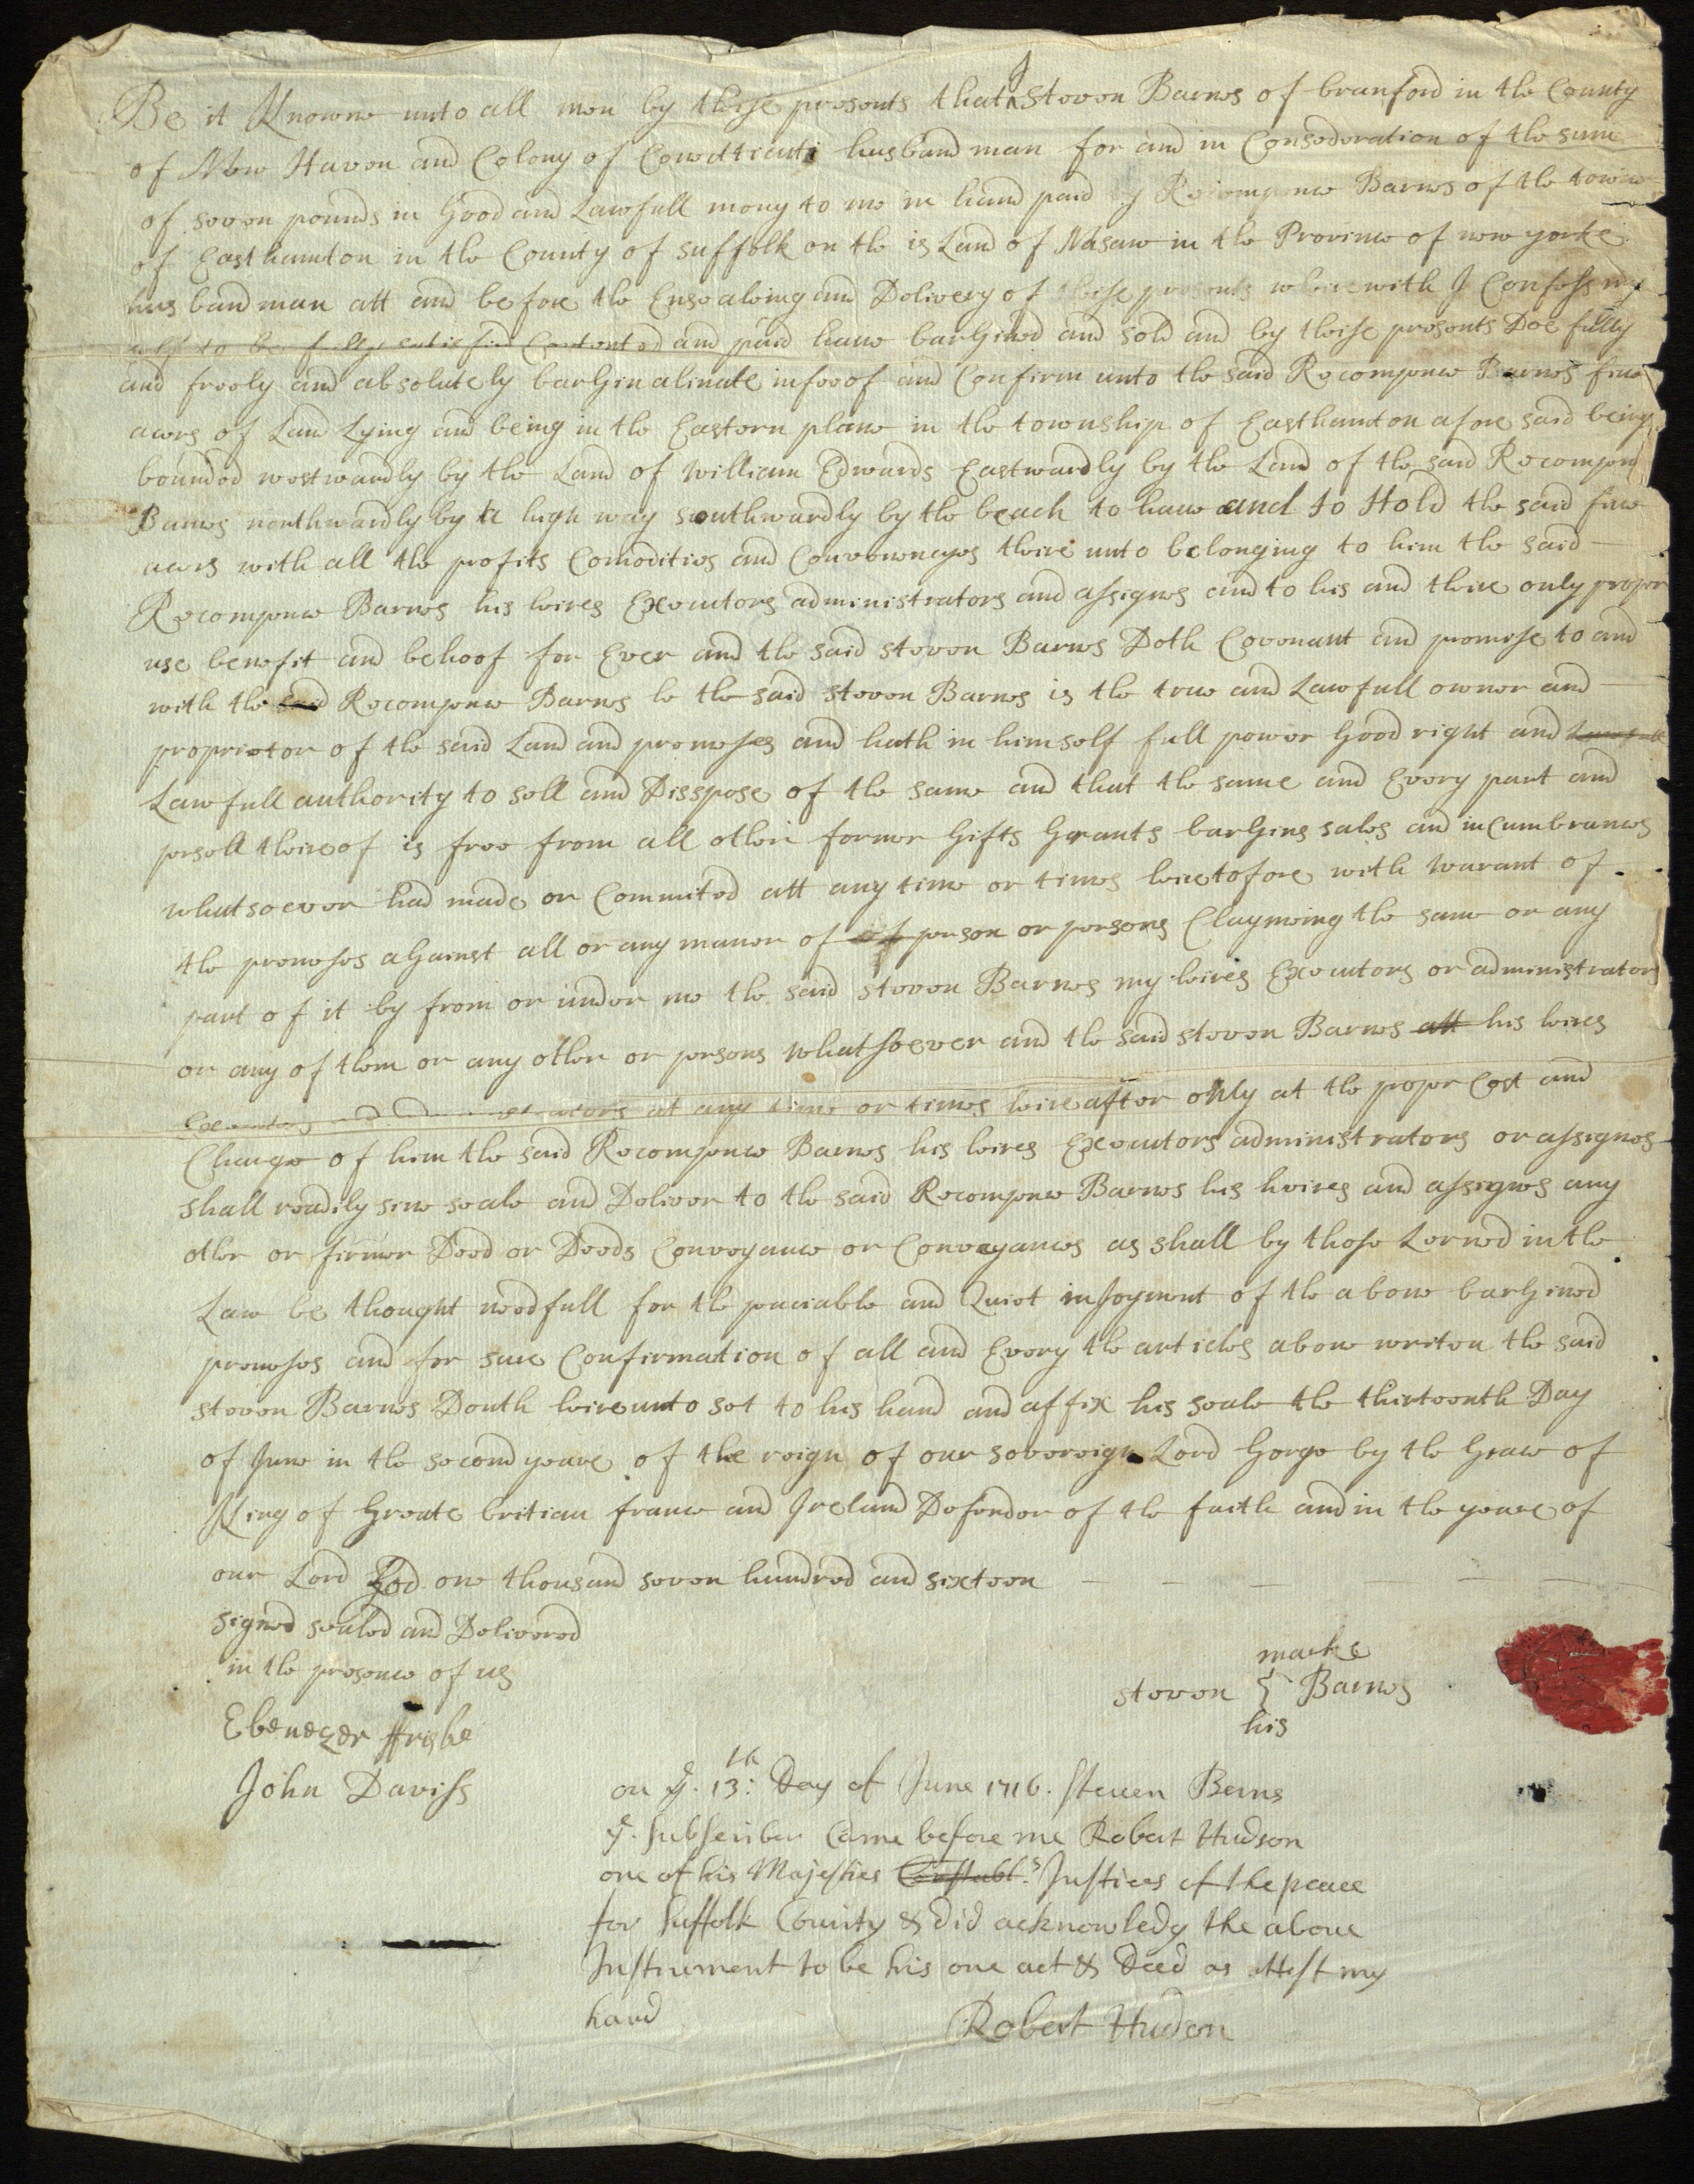 Be it Knowne unto all men by these presents that I Steven Barnes of branford in the County
of New Haven and Colony of Conectticut husband man for and in Consederation of the sum
of seven pounds in Good and Lawfull mony to me in hand paid by Recompence Barnes of the towne
of Easthamton in the County of suffolk on the is Land of Nasaw in the Province of new yorke
hus band man att and before the Ensealeing and Delivery of these presents wherewith I Confess my
selfe to be fully satisfied Contented and paid have barGined and sold and by these presents Doe fully
and freely and absolutely barGin alinate infeoof and Confirm unto the said Recompence Barnes five
acers of Land Lying and being in the Eastern plane in the township of Easthamton afore said being
bounded westwardly by the Land of William Edwards Eastwardly by the Land of the said Recompenc
Barnes northwardly by a high way southwardly by the beach to have and to Hold the said five
acers with all the profits Comodities and Conveneneyes theire unto belonging to him the said
Recompence Barnes his heires Executors administrators and assignes and to his and theire only proper
use benefit and behoof for Ever and the said steven Barnes Doth Covenant and promise to and
with the said Recompence Barnes he the said steven Barnes is the true and Lawfull owner and
proprietor of the said Land and premeses and hath in himself full power Good right and Lawfull
Lawfull authority to sell and Disspose of the same and that the same and Every part and
persell theireof is free from all other former Gifts Grants barGins sales and incumbrances
whatsoever had made or Commited att any time or times heiretofore with warant of
the premeses aGainst all or any maner of of person or persons Claymeing the same or any
part of it by from or under me the said steven Barnes my heires Executors or administrators
or any of them or any other or persons whatsoever and the said steven Barnes att his heires
Executors and administrators at any time or times heireafter only at the proper Cost and
Charge of him the said Recompence Barnes his heires Executors administrators or assignes
shall readily sine seale and Deliver to the said Recompence Barnes his heires and assignes any
other or firmer Deed or Deeds Conveyance or Conveyances as shall by those Lerned in the
Law be thought needfull for the peaciable and Quiet injoyment of the above barGined
premeses and for sure Confirmation of all and Every the articles above writen the said
steven Barnes Douth heireunto set to his hand and affix his seale the thirteenth Day
of June in the second yeare of the reign of our sovereign Lord Gorge by the Grace of
King of Greate britian france and Ireland Defender of the faith and in the yeare of
our Lord God one thousand seven hundred and sixteen
signed sealed and Delivered
in the presence of us
marke
steven Barnes
his
Ebenezer ffrisbe
John Daviss
on ye. 13th: Day of June 1716. Steven Berns
ye. Subscriber Came before me Robert Hudson
one of his Majesties Constabl.s Justices of the peace
for Suffolk County & did acknowledg the above
Instrument to be his one act & Deed as attest my
hand
Robert Hudson